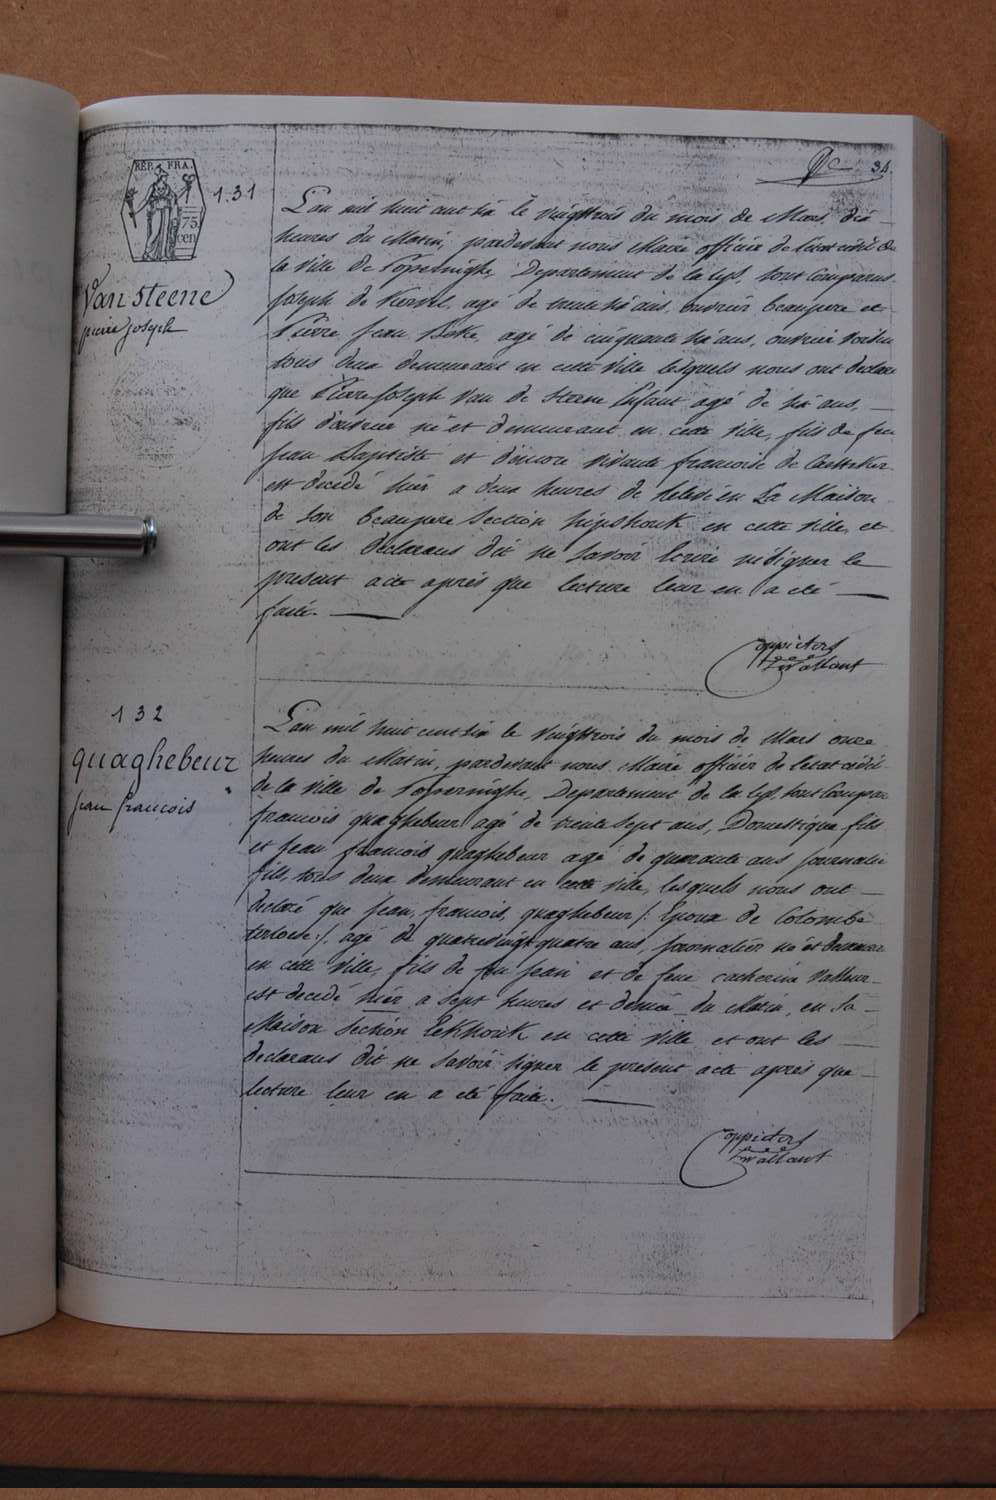 34.
RÉP. FRA.
75
cen
131
Van Steene
pierre joseph
L'an mil huit cent six le vingttrois du mois de Mars, dix
heures du Matin, pardevant nous Maire officier de l'état civil de
la ville de Poperinghe, Departement de la Lys, sont Comparus
Joseph de Kervel, agé de trente six ans, ouvrier beaupere et
Pierre Jean Beke, agé de cinquante six ans, ouvrier voisin
tous deux demeurant en cette ville lesquels nous ont declaré
que Pierre Joseph Van de Steene Enfant agé de six ans,
fils d'ouvrier né et demeurant en cette ville, fils de feu
Jean Baptiste et d'encore vivante francoise de Casteker
est decedé hier a deux heures de relevé en La Maison
de son beaupere Section hipshouk en cette ville, et
ont les declarans dit ne savoir écrire ni signer le
present acte après que lecture leur en a eté
faite.
Coppieters
Wallant
132
quaghebeur
jean francois
L'an mil huit cent six le vingttrois du mois de Mars onze
heures du Matin, pardevant nous Maire officier de l'état civil
de la ville de Poperinghe, Departement de la Lys, sont Comparus
francois quaghebeur agé de trente sept ans, Domestique fils
et Jean francois quaghebeur agé de quarante ans journalier
fils, tous deux demeurant en cette ville, lesquels nous ont
declaré que Jean, francois, quaghebeur /: Epoux de Colombe
terloche :/, agé de quatrevingt quatre ans, journalier né et demeurant
en cette ville, fils de feu Jean et de feue catherine
est decedé hier a sept heures et demie du Matin, en sa
Maison Section Eekhouk en cette ville et ont les
declarans dit ne savoir signer le present acte après que
lecture leur en a eté faite.
Coppieters
Wallant